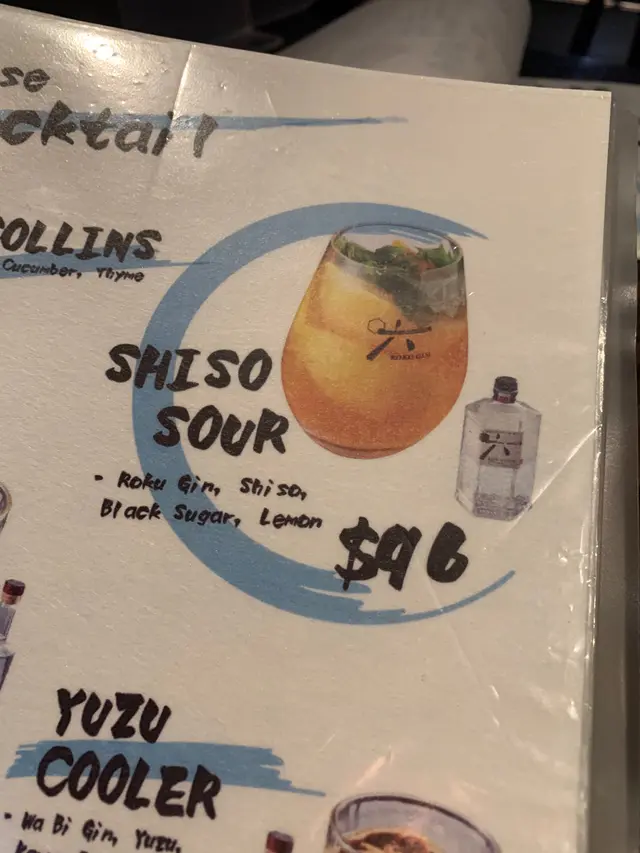 se
cktail
OLLINS
Cucumber, Thyme
SHISO
SOUR
- Roku Gin, Shiso,
Black Sugar, Lemon
$96
六
ROKU GIN
六
YUZU
COOLER
- Wa Bi Gin, Yuzu,